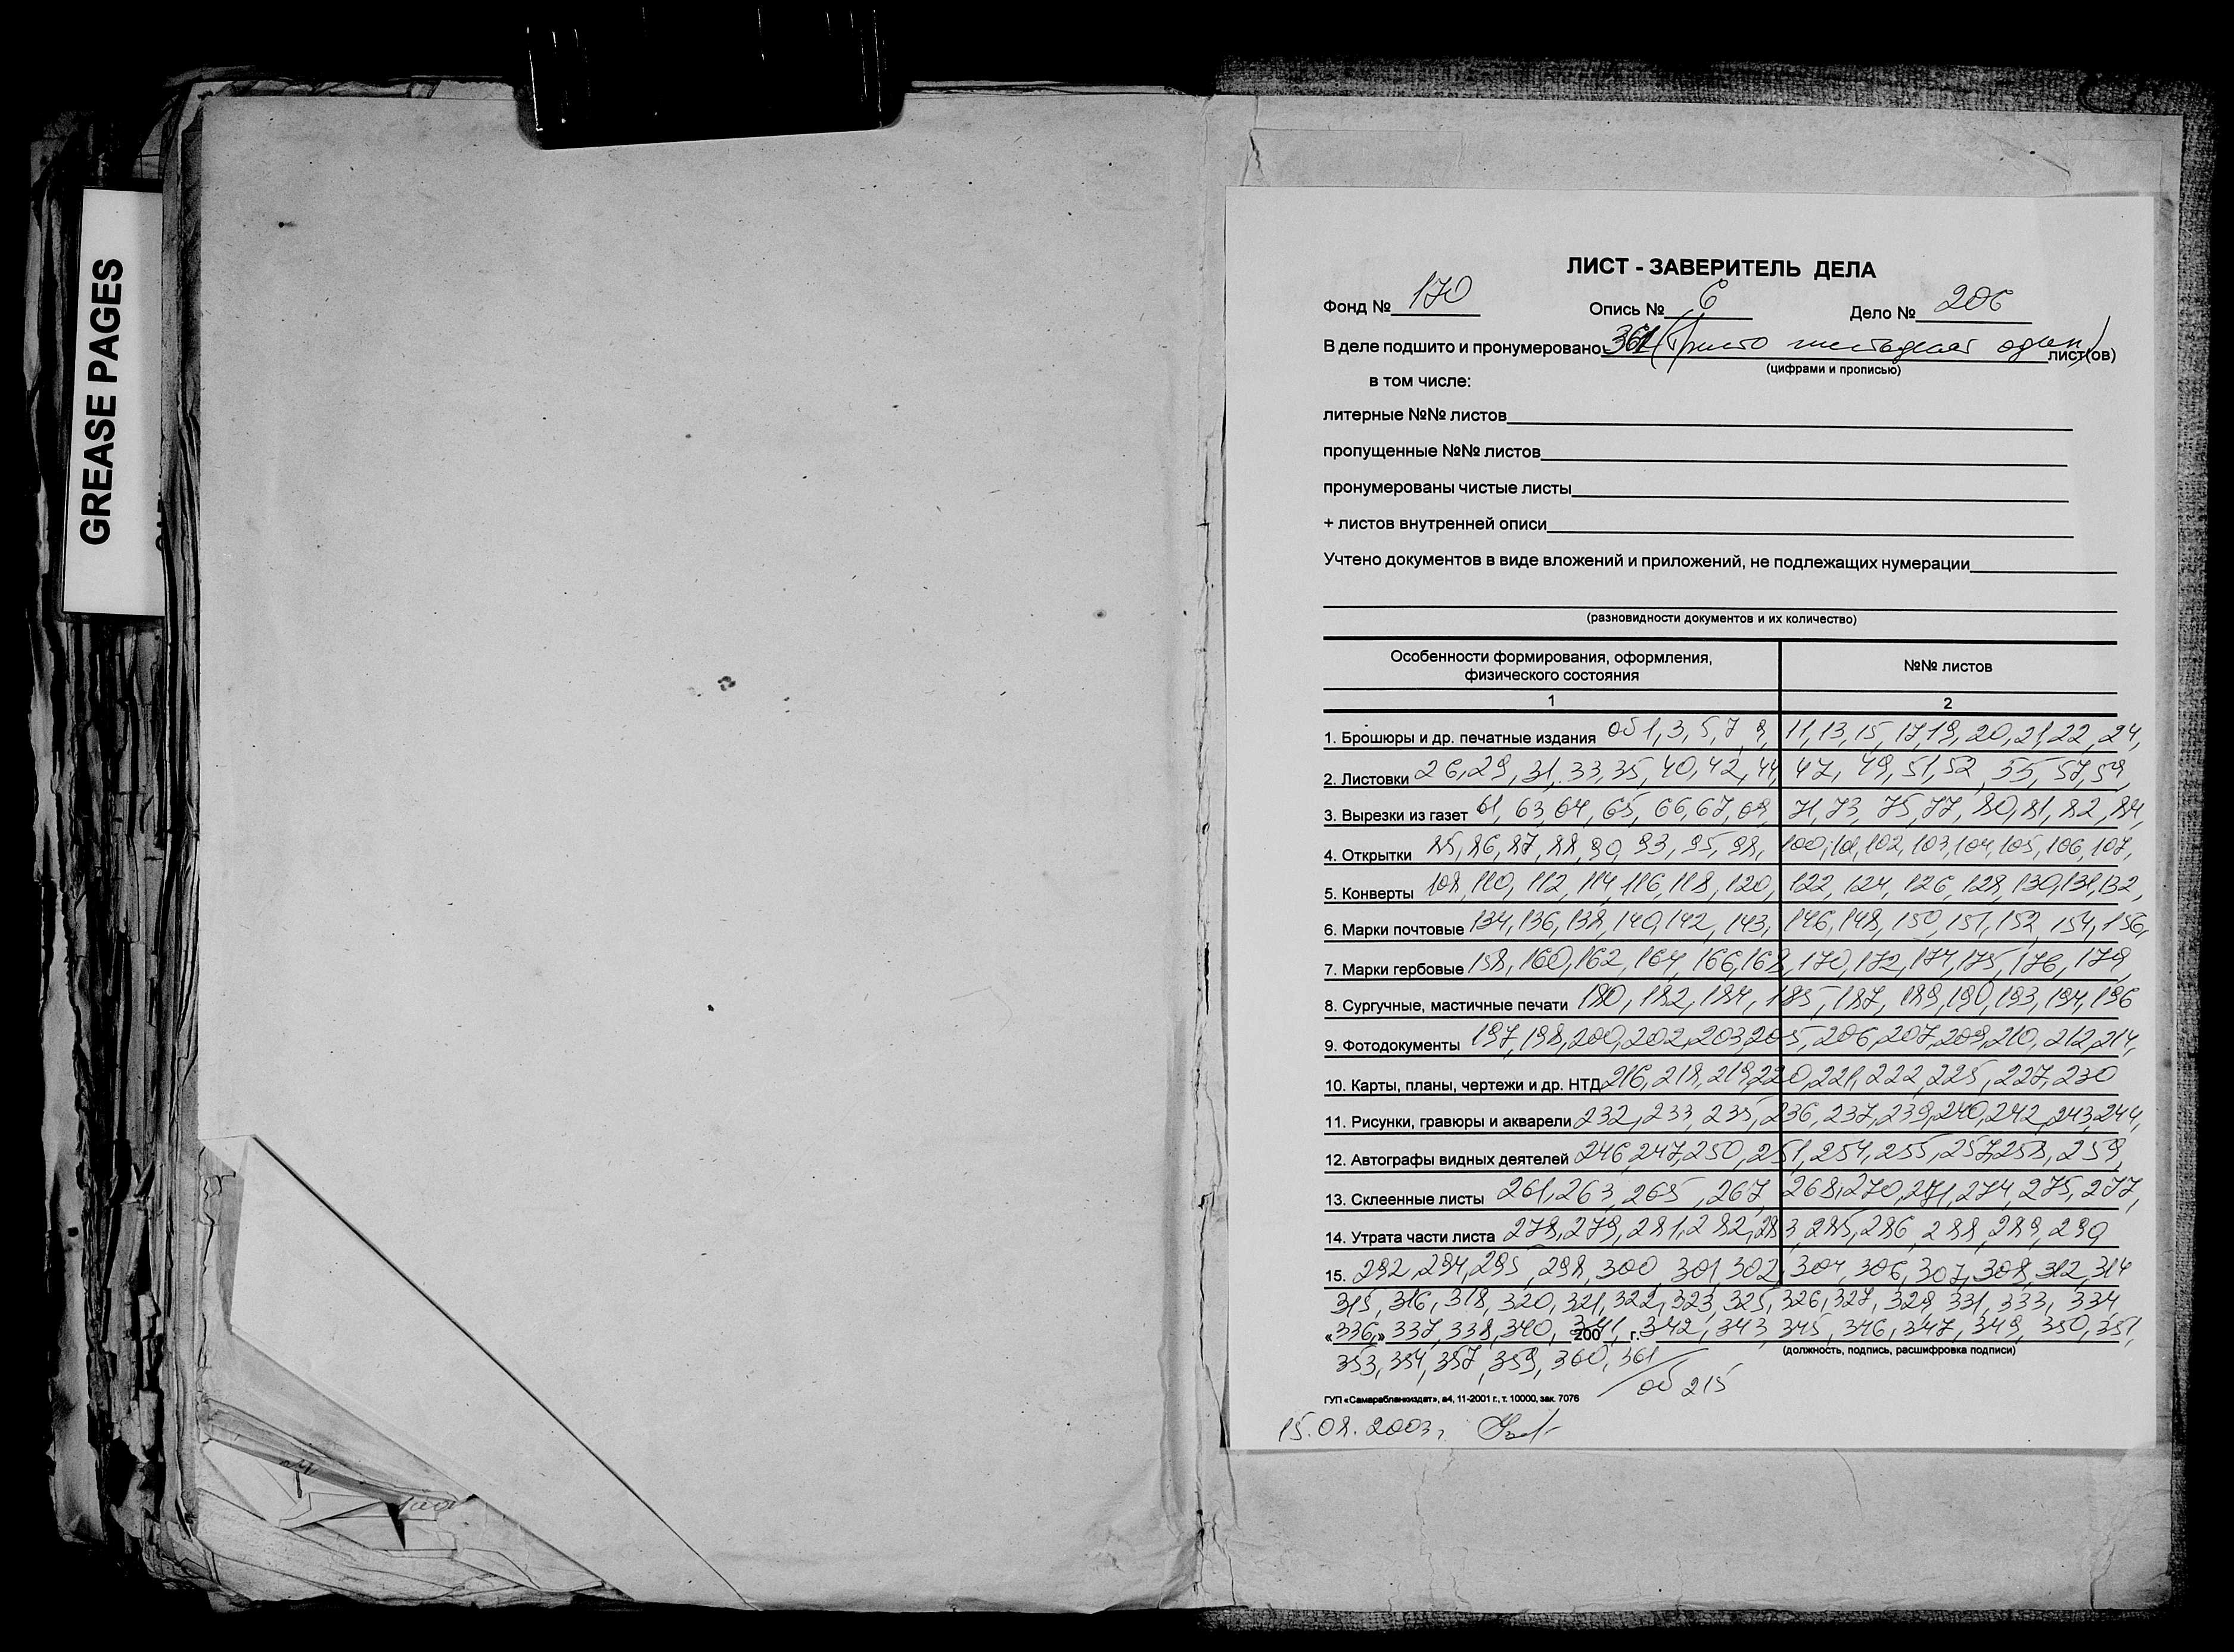 GREASE PAGES
ЛИСТ - ЗАВЕРИТЕЛЬ ДЕЛА
Фонд № 170 Опись № 6 Дело № 206
В деле подшито и пронумеровано 361 (Триста шестьдесят один) лист(ов)
(цифрами и прописью)
в том числе:
литерные №№ листов
пропущенные №№ листов
пронумерованы чистые листы
+ листов внутренней описи
Учтено документов в виде вложений и приложений, не подлежащих нумерации
(разновидности документов и их количество)
Особенности формирования, оформления, физического состояния №№ листов
1 2
1. Брошюры и др. печатные издания об 1, 3, 5, 7, 9, 11, 13, 15, 17, 19, 20, 21, 22, 24,
2. Листовки 26, 29, 31, 33, 35, 40, 42, 44, 47, 49, 51, 52, 55, 57, 59,
3. Вырезки из газет 61, 63, 64, 65, 66, 67, 69, 71, 73, 75, 77, 80, 81, 82, 84,
4. Открытки 85, 86, 87, 88, 90, 93, 95, 98, 100, 101, 102, 103, 104, 105, 106, 107,
5. Конверты 108, 110, 112, 114, 116, 118, 120, 122, 124, 126, 128, 130, 131, 132,
6. Марки почтовые 134, 136, 138, 140, 142, 143, 146, 148, 150, 151, 152, 154, 156,
7. Марки гербовые 158, 160, 162, 164, 166, 168, 170, 172, 174, 175, 176, 179,
8. Сургучные, мастичные печати 180, 182, 184, 185, 187, 189, 190, 193, 194, 196
9. Фотодокументы 197, 198, 200, 202, 203, 205, 206, 207, 209, 210, 212, 214,
10. Карты, планы, чертежи и др. НТД 216, 218, 219, 220, 221, 222, 225, 227, 230
11. Рисунки, гравюры и акварели 232, 233, 235, 236, 237, 239, 240, 242, 243, 244,
12. Автографы видных деятелей 246, 247, 250, 251, 254, 255, 257, 258, 259,
13. Склеенные листы 261, 263, 265, 267, 268, 270, 271, 274, 275, 277,
14. Утрата части листа 278, 279, 281, 282, 283, 285, 286, 288, 289, 290,
15. 292, 294, 295, 298, 300, 301, 302, 304, 306, 307, 308, 312, 314
315, 316, 318, 320, 321, 322, 323, 325, 326, 327, 329, 331, 333, 334
«336,» 337, 338, 340, 341, 200 г. 342, 343, 345, 346, 347, 349, 350, 351,
(должность, подпись, расшифровка подписи)
353, 354, 357, 359, 360, 361
об 215
ГУП «Самарабланкиздат», а4, 11-2001 г., т. 10000, зак. 7076
15.08.2003 г.